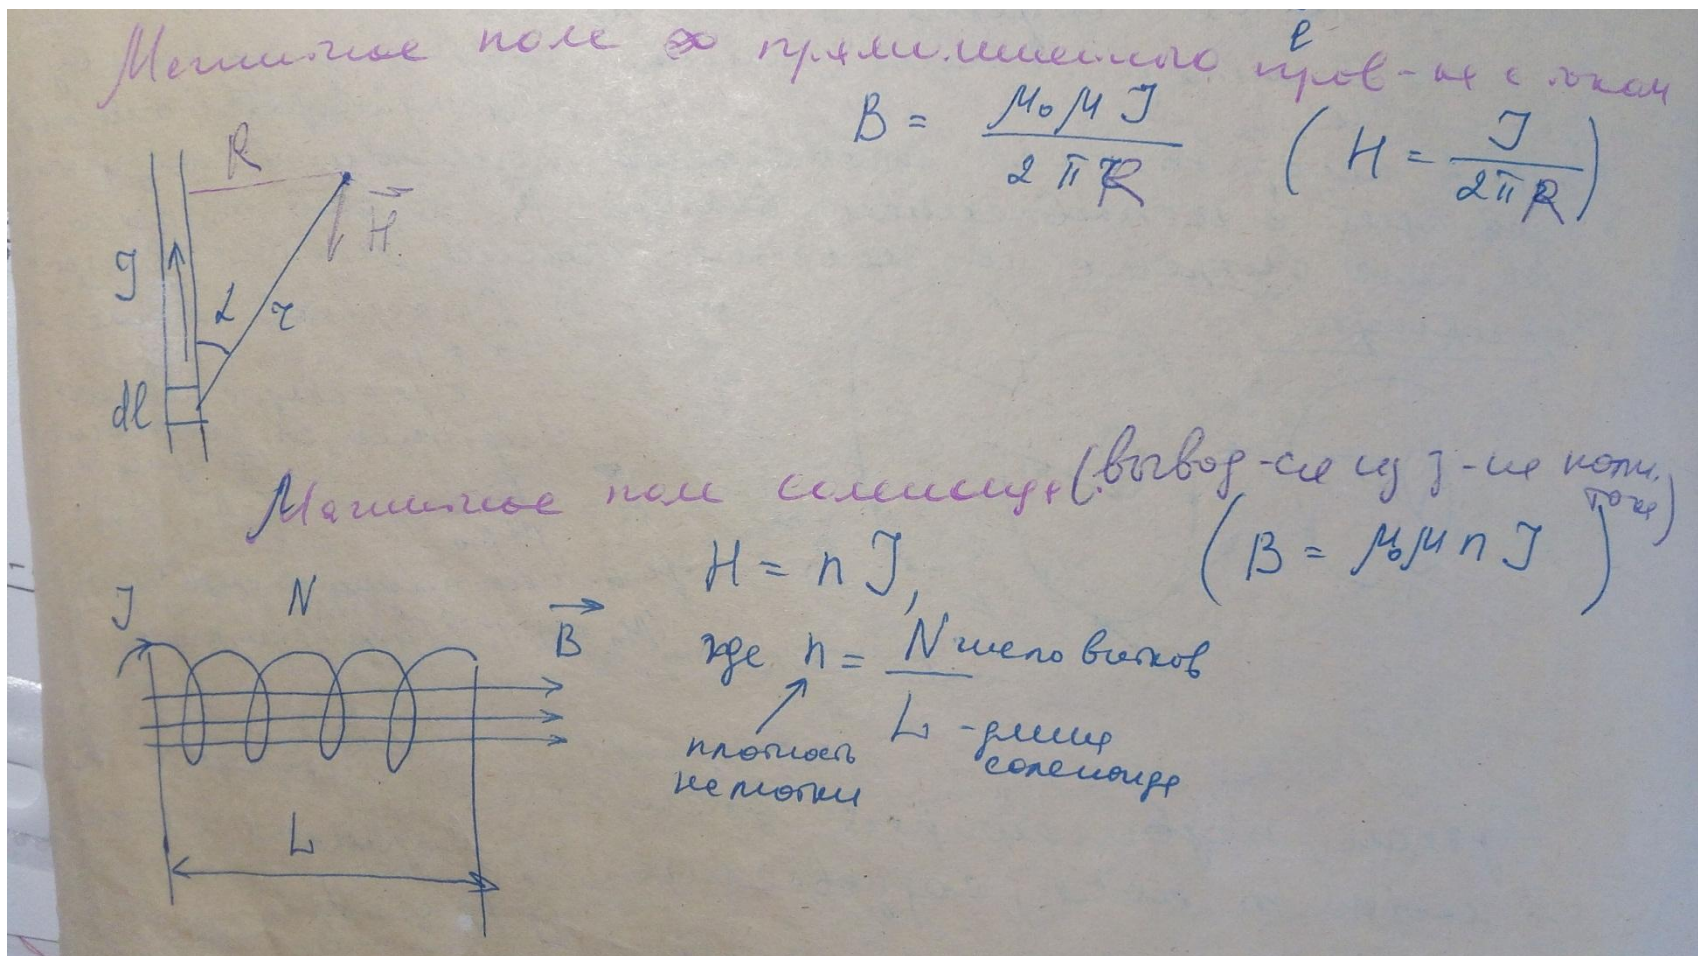 l
Магнитное поле прямолинейного пров-ка с током
B = μ₀μJ / 2πR (H = J / 2πR)
R
H⃗
J
α
r
dl
Магнитное поле соленоида (вывод-ся из з-на полн. тока)
H = nJ, (B = μ₀μnJ)
J
N
B⃗
где n = N число витков
L - длина
соленоида
плотность
намотки
L